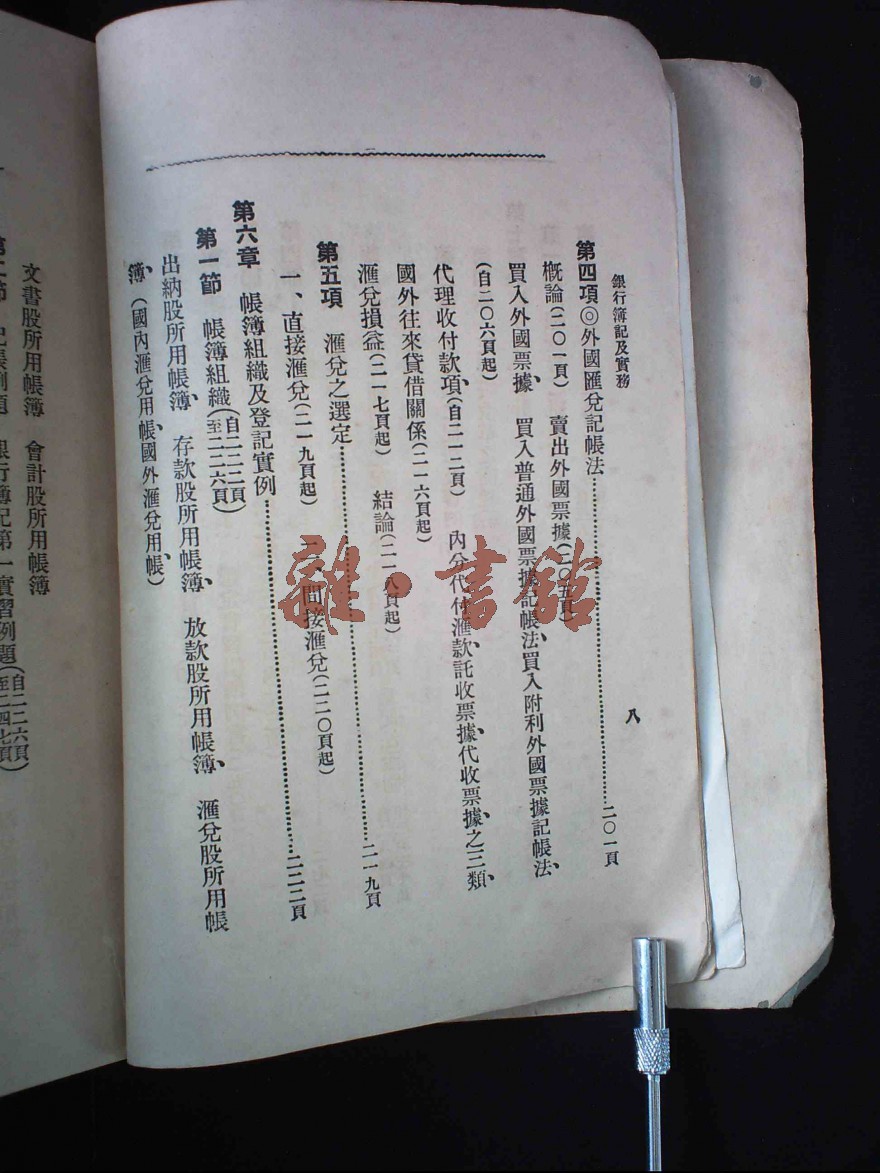 銀行簿記及實務
八
第四項◎外國匯兌記帳法……二〇一頁
概論(二〇一頁) 賣出外國票據(二〇五頁)
買入外國票據、 買入普通外國票據記帳法、買入附利外國票據記帳法、
(自二〇六頁起)
代理收付款項、(自二一二頁) 內分代付滙款、託收票據、代收票據、之三類、
國外往來貸借關係(二一六頁起)
滙兌損益(二一七頁起) 結論(二一八頁起)
第五項 滙兌之選定……二一九頁
一、直接滙兌(二一九頁起) 二、間接滙兌(二二〇頁起)
第六章 帳簿組織及登記實例……二二二頁
第一節 帳簿組織(自二二二頁至二二六頁)
出納股所用帳簿、 存款股所用帳簿、 放款股所用帳簿、 滙兌股所用帳
簿、(國內滙兌用帳、國外滙兌用帳、)
文書股所用帳簿 會計股所用帳簿
第二節 記帳例題 銀行簿記第一實習例題(自二二六頁至二四七頁)
雜·書館